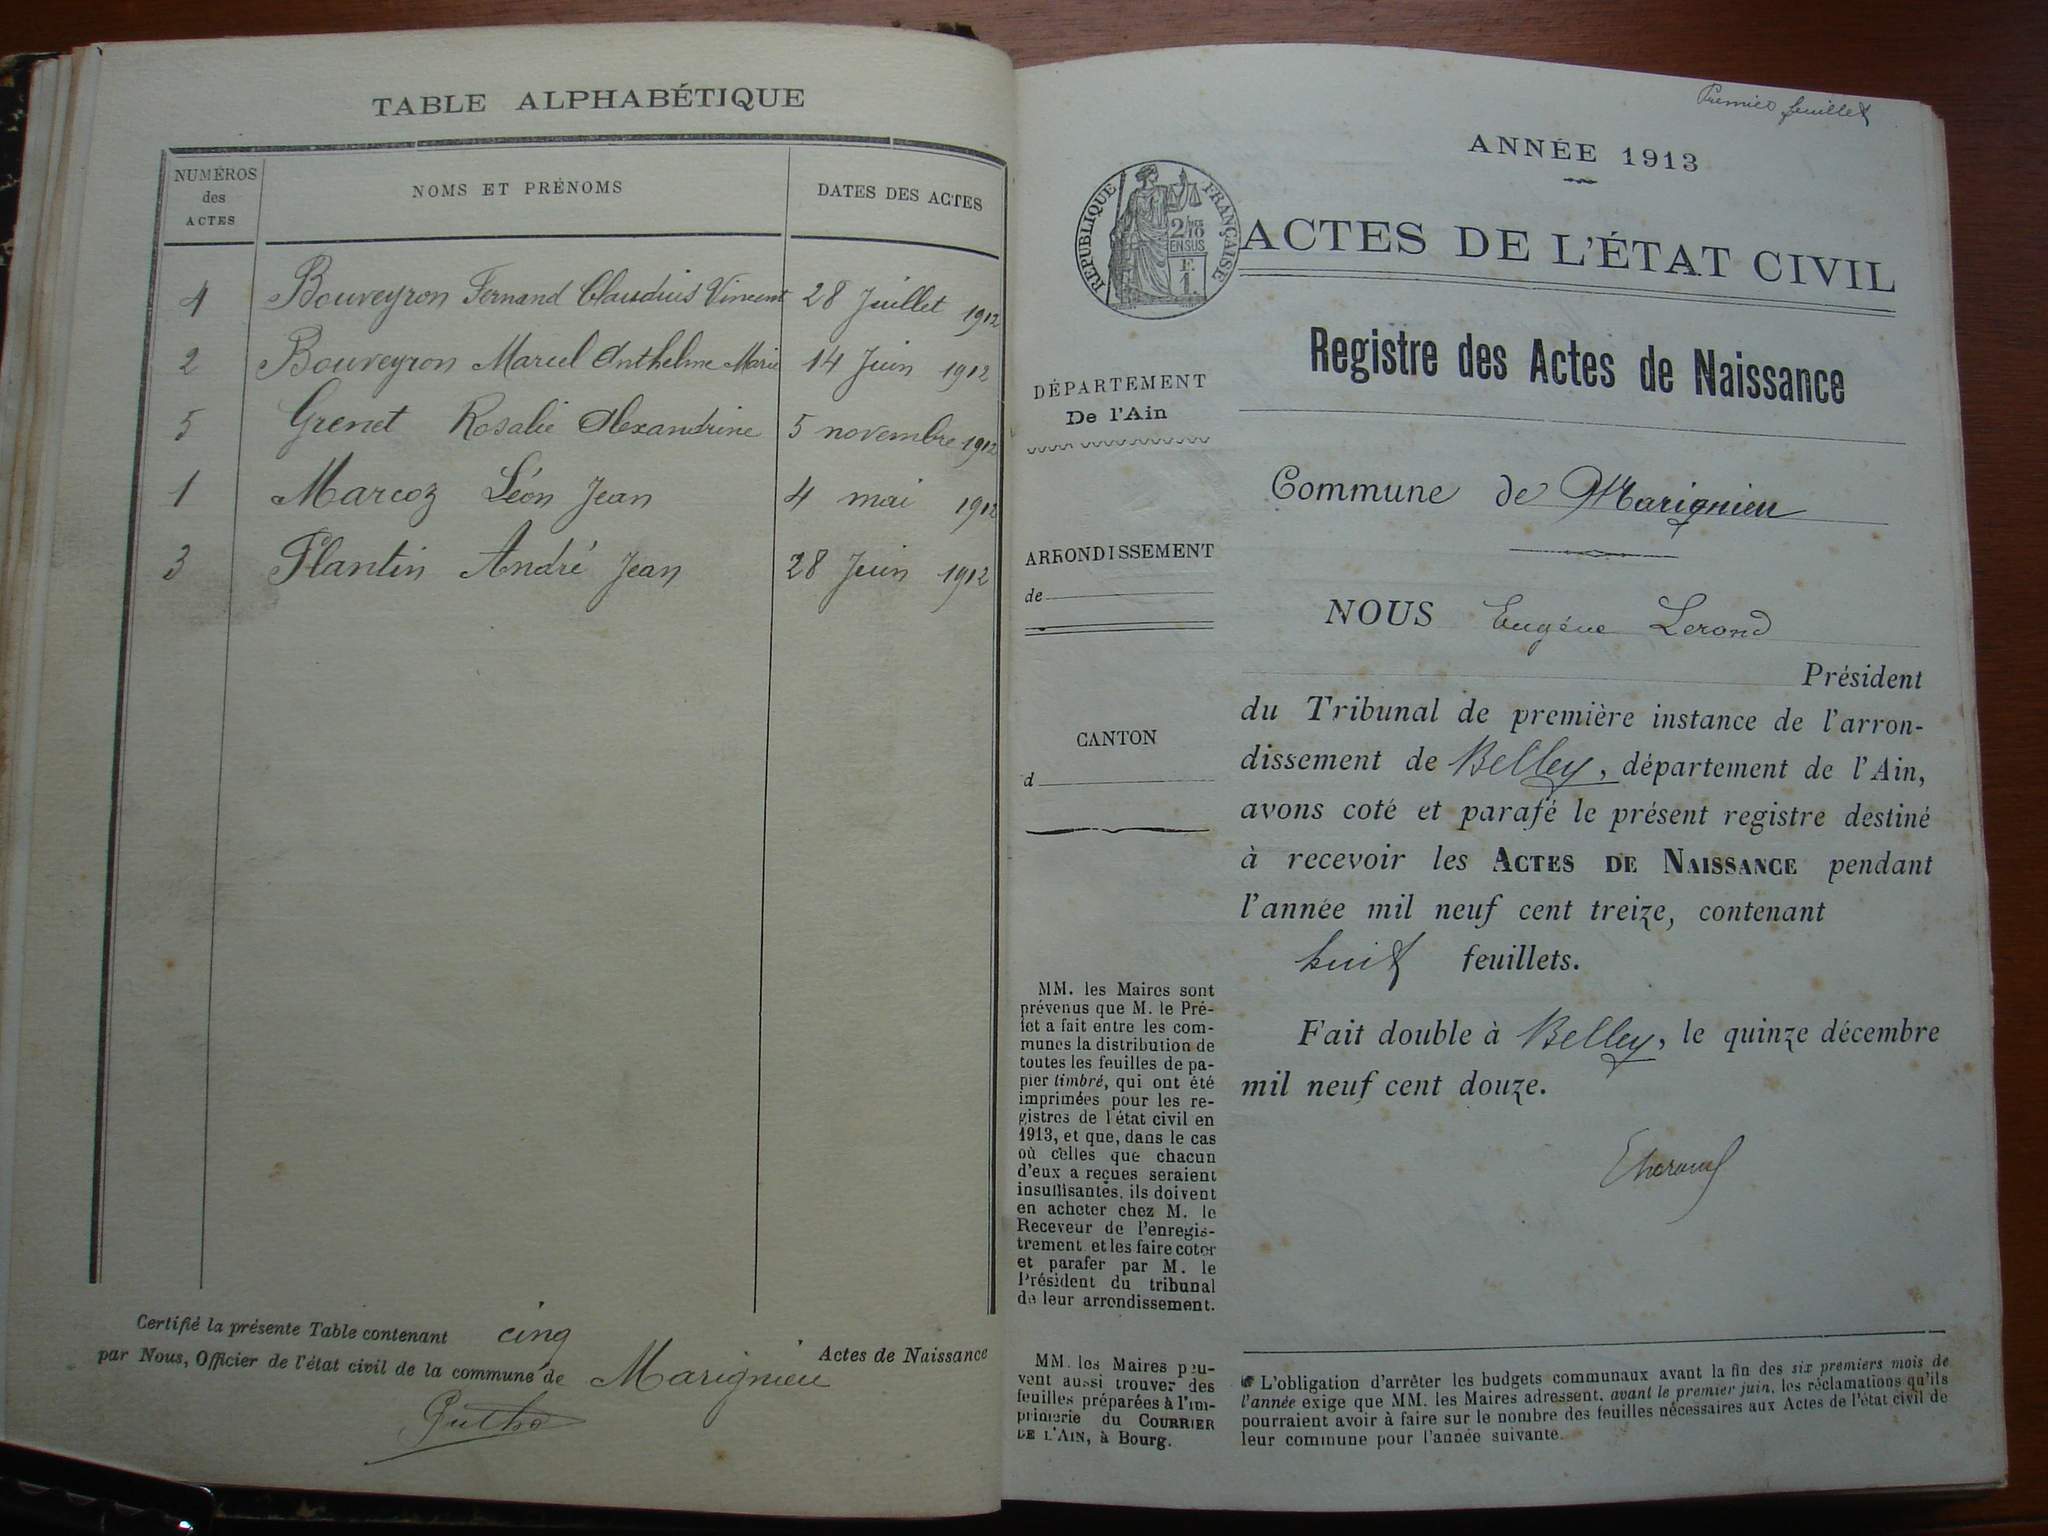 TABLE ALPHABÉTIQUE
NUMÉROS
des
ACTES
NOMS ET PRÉNOMS
DATES DES ACTES
4 Bouveyron Fernand Claudius Vincent 28 Juillet 1912
2 Bouveyron Marcel Anthelme Marie 14 Juin 1912
5 Grenet Rosalie Alexandrine 5 novembre 1912
1 Marcoz Léon Jean 4 mai 1912
3 Plantin André Jean 28 Juin 1912
Certifié la présente Table contenant cinq Actes de Naissance
par Nous, Officier de l'état civil de la commune de Marignieu
Premier feuillet
ANNÉE 1913
RÉPUBLIQUE FRANÇAISE
2/10
EN SUS
F.
1.
ACTES DE L'ÉTAT CIVIL
Registre des Actes de Naissance
DÉPARTEMENT
De l'Ain
Commune de Marignieu
ARRONDISSEMENT
de
CANTON
d
NOUS Eugène Lerond
Président
du Tribunal de première instance de l'arron-
dissement de Belley, département de l'Ain,
avons coté et parafé le présent registre destiné
à recevoir les ACTES DE NAISSANCE pendant
l'année mil neuf cent treize, contenant
huit feuillets.
Fait double à Belley, le quinze décembre
mil neuf cent douze.
MM. les Maires sont
prévenus que M. le Pré-
fet a fait entre les com-
munes la distribution de
toutes les feuilles de pa-
pier timbré, qui ont été
imprimées pour les re-
gistres de l'état civil en
1913, et que, dans le cas
où celles que chacun
d'eux a reçues seraient
insuffisantes, ils doivent
en acheter chez M. le
Receveur de l'enregis-
trement et les faire coter
et parafer par M. le
Président du tribunal
de leur arrondissement.
MM. les Maires peu-
vent aussi trouver des
feuilles préparées à l'im-
primerie du COURRIER
DE L'AIN, à Bourg.
☛ L'obligation d'arrêter les budgets communaux avant la fin des six premiers mois de
l'année exige que MM. les Maires adressent, avant le premier juin, les réclamations qu'ils
pourraient avoir à faire sur le nombre des feuilles nécessaires aux Actes de l'état civil de
leur commune pour l'année suivante.